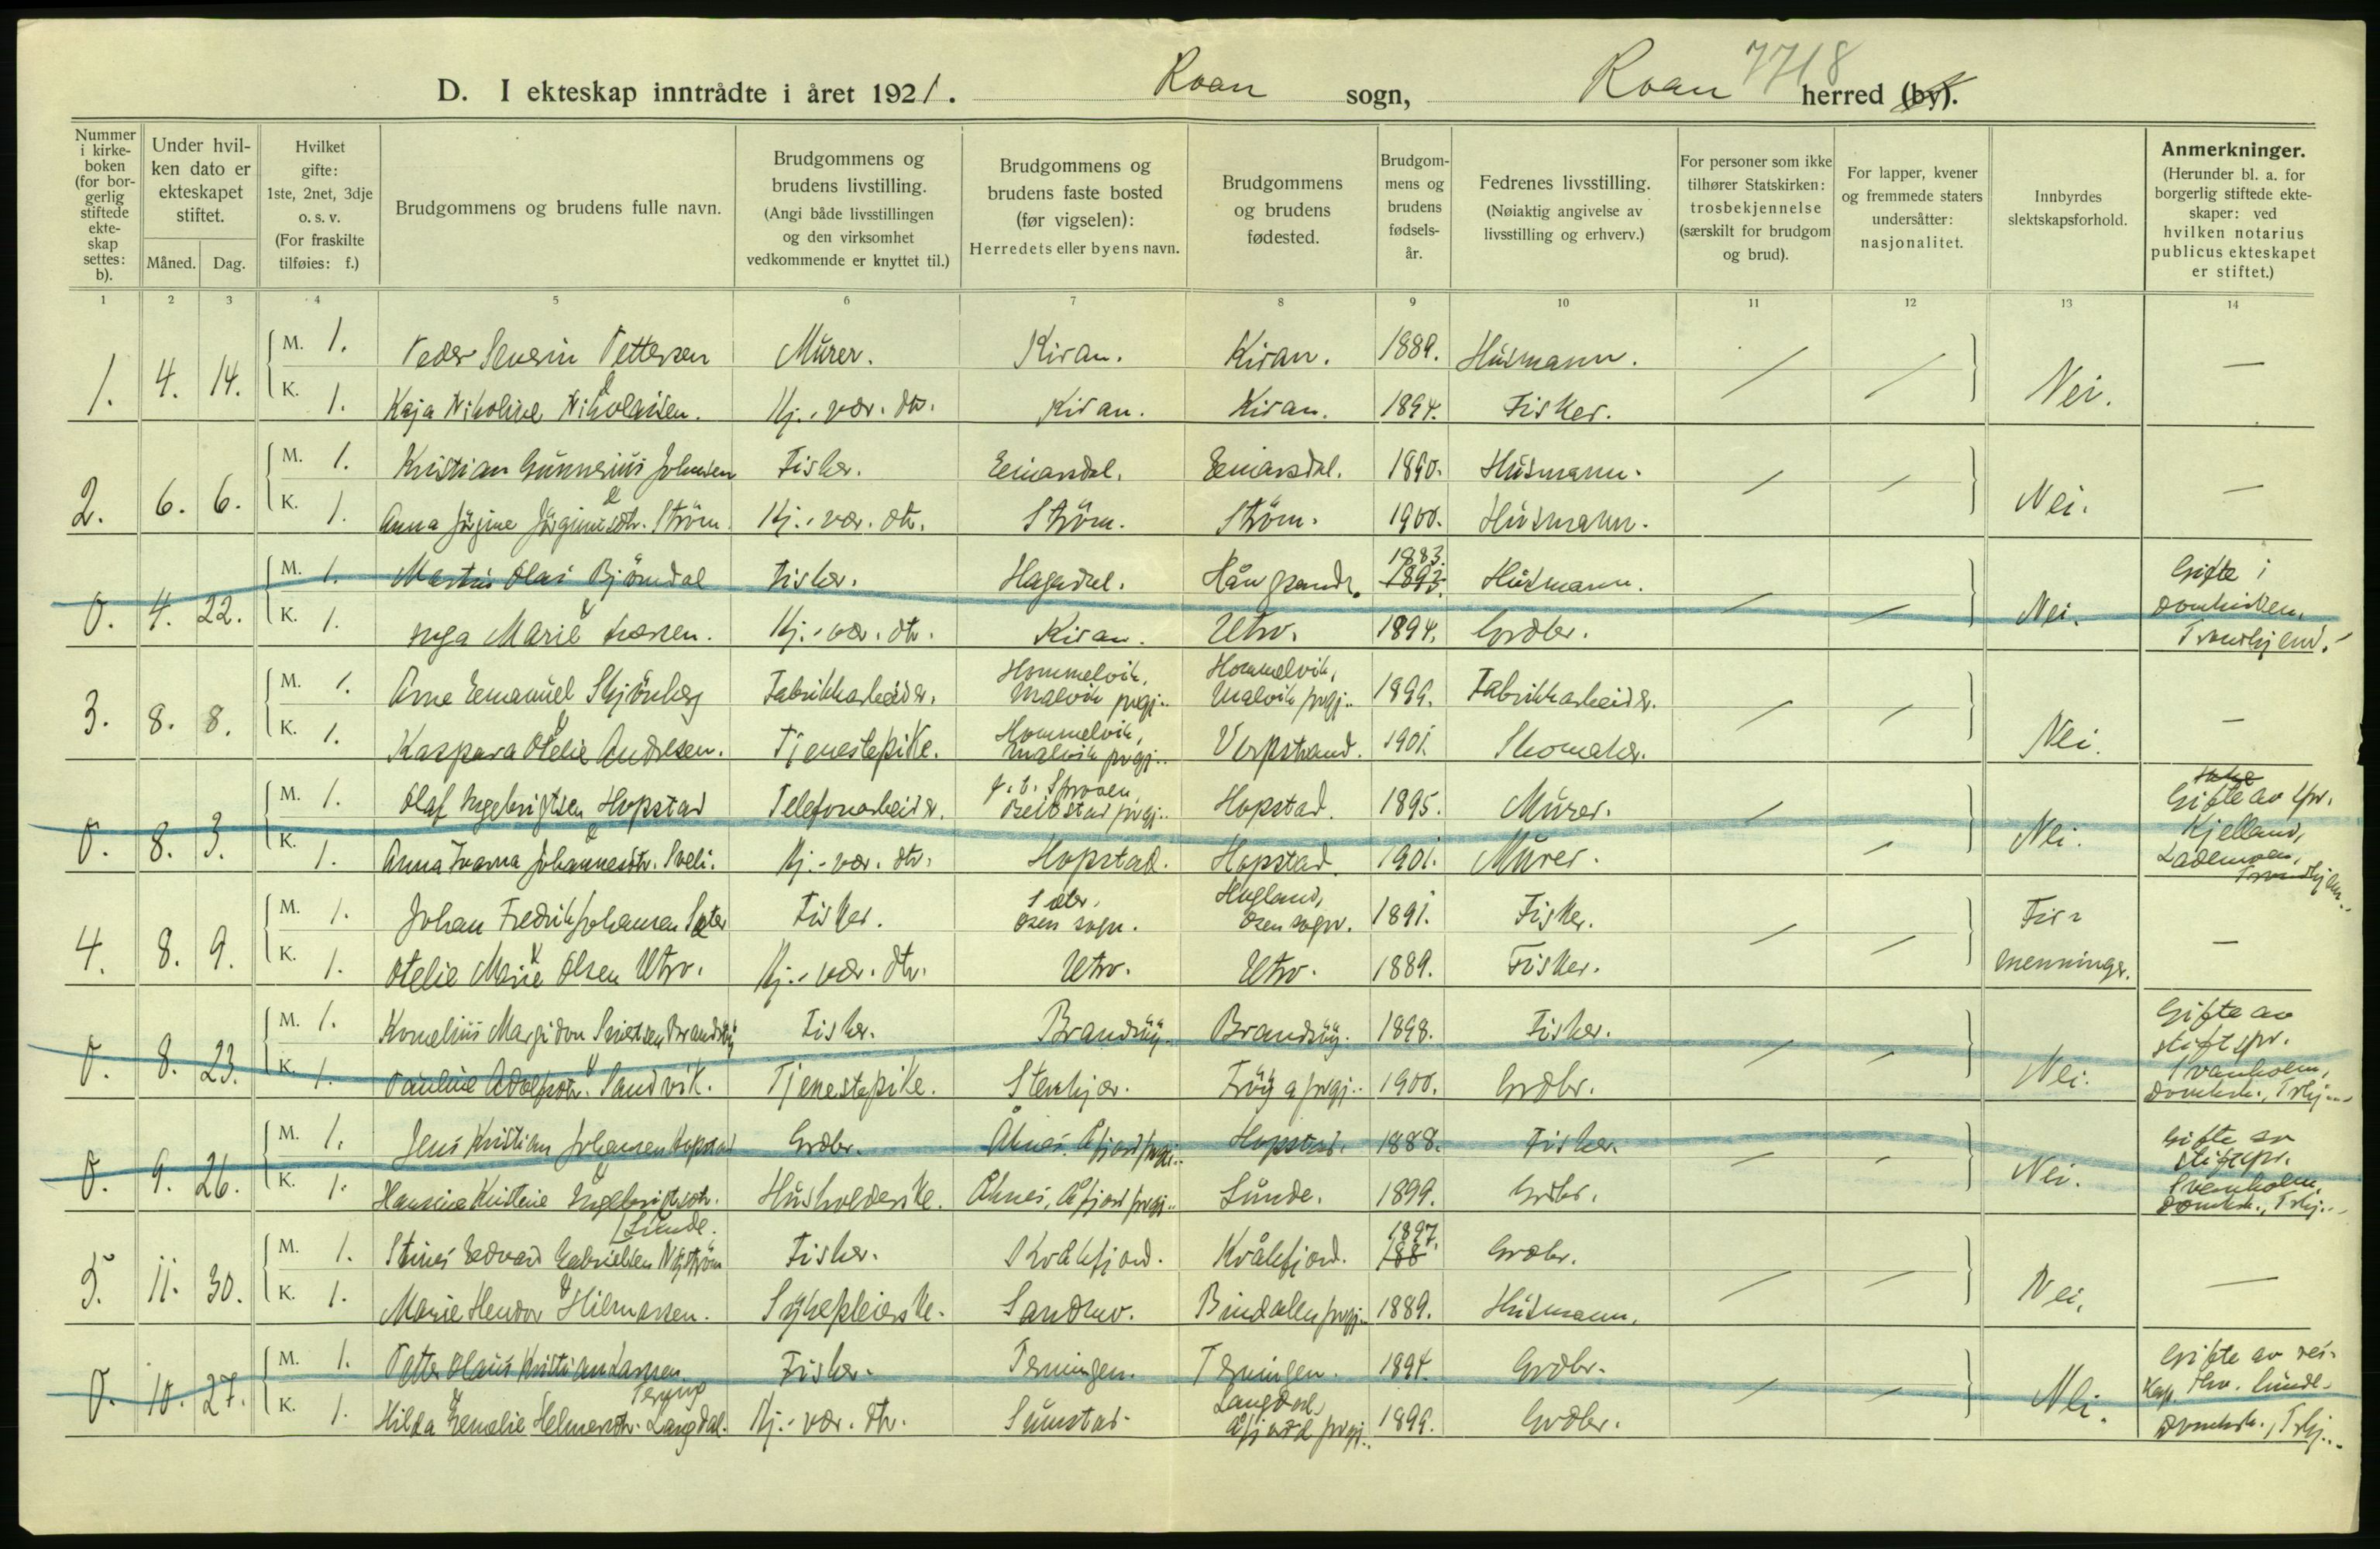 D. I ekteskap inntrådte i året 1921. Roan sogn, Roan herred (by). 7718
Nummer i kirkeboken (for borgerlig stiftede ekteskap settes: b).
Under hvilken dato er ekteskapet stiftet.
Måned. Dag.
Hvilket gifte: 1ste, 2net, 3dje o. s. v. (For fraskilte tilføies: f.)
Brudgommens og brudens fulle navn.
Brudgommens og brudens livstilling. (Angi både livsstillingen og den virksomhet vedkommende er knyttet til.)
Brudgommens og brudens faste bosted (før vigselen): Herredets eller byens navn.
Brudgommens og brudens fødested.
Brudgommens og brudens fødselsår.
Fedrenes livsstilling. (Nøiaktig angivelse av livsstilling og erhverv.)
For personer som ikke tilhører Statskirken: trosbekjennelse (særskilt for brudgom og brud).
For lapper, kvener og fremmede staters undersåtter: nasjonalitet.
Innbyrdes slektskapsforhold.
Anmerkninger. (Herunder bl. a. for borgerlig stiftede ekteskaper: ved hvilken notarius publicus ekteskapet er stiftet.)
1 2 3 4 5 6 7 8 9 10 11 12 13 14
1. 4. 14. M. 1. Peder Severin Pettersen Murer. Kiran. Kiran. 1889. Husmann. / / Nei. —
K. 1. Kaja Nikoline Nikolaisen. Kj.-vær. dtr. Kiran. Kiran. 1894. Fisker.
2. 6. 6. M. 1. Kristian Gunnerius Johnsen Fisker. 1890. Husmann. / / Nei. —
K. 1. Anna Jörgine Jörginusdtr. Ström. Kj.-vær. dtr. Ström. Ström. 1900. Husmann.
0. 4. 22. M. 1. Martin Olai Björndal Fisker. Hagadal. 1883. 1893. Husmann. / / Nei. Gifte i Domkirken, Trondhjem.
K. 1. Inga Marie Kj.-vær. dtr. Kiran. Utro. 1894. Grdbr.
3. 8. 8. M. 1. Arne Emanuel Skjönberg Fabrikkarbeider. Hommelvik, Malvik prgj. Hommelvik, Malvik prgj. 1899. Fabrikkarbeider. / / Nei. —
K. 1. Kaspara Otelie Andresen. Tjenestepike. Hommelvik, Malvik prgj. Vorpstrand. 1901. Skomaker.
0. 8. 3. M. 1. Olaf Ingebrigtsen Hopstad Telefonarbeider. p. t. Beitstad prgj. Hopstad. 1895. Murer. / / Nei. Gifte av spr. Kjelland, Lademoen, Trondhjem.
K. 1. Anna Ivarna Johannesdtr. Sveli. Kj.-vær. dtr. Hopstad. Hopstad. 1901. Murer.
4. 8. 9. M. 1. Johan Fredrik Johansen Sæter Fisker. Sæter, Osen sogn. Hugland, Osen sogn. 1891. Fisker. / / Tremenninger. —
K. 1. Otelie Marie Olsen Utro. Kj.-vær. dtr. Utro. Utro. 1889. Fisker.
0. 8. 23. M. 1. Kornelius Margidon Sivertsen Brandsöy Fisker. Brandsöy. Brandsöy. 1898. Fisker. / / Nei. Gifte av stiftspr. Svanholm, Domkrk., Trhj.
K. 1. Pauline Adolfsdtr. Sandvik. Tjenestepike. Stenkjær. Fröya prgj. 1900. Grdbr.
0. 9. 26. M. 1. Jens Kristian Johansen Hopstad Grdbr. Åfjord prgj. Hopstad. 1888. Fisker. / / Nei. Gifte av stiftspr. Svenholm, Domkrk., Trhj.
K. 1. Hansine Kristine Engebrigtsdtr. Lunde. Husholderske. Åfjord prgj. Lunde. 1899. Grdbr.
5. 11. 30. M. 1. Edvard Gabrielsen Nyström Fisker. Kvålefjord. Kvålefjord. 1897. 188 Grdbr. / / Nei. —
K. 1. Marie Hilmarsen. Sykepleierske. Sandmo. Bindalen prgj. 1889. Husmann.
0. 10. 27. M. 1. Petter Olaus Kristian Larsen Terning Fisker. Terningen. Terningen. 1894. Grdbr. / / Nei. Gifte av res. kap. Thv. Lunde. Domkrk., Trhj.
K. 1. Hilda Emelie Helmersdtr. Langdal. Kj.-vær. dtr. Sumstad. Langdal, Åfjord prgj. 1899. Grdbr.